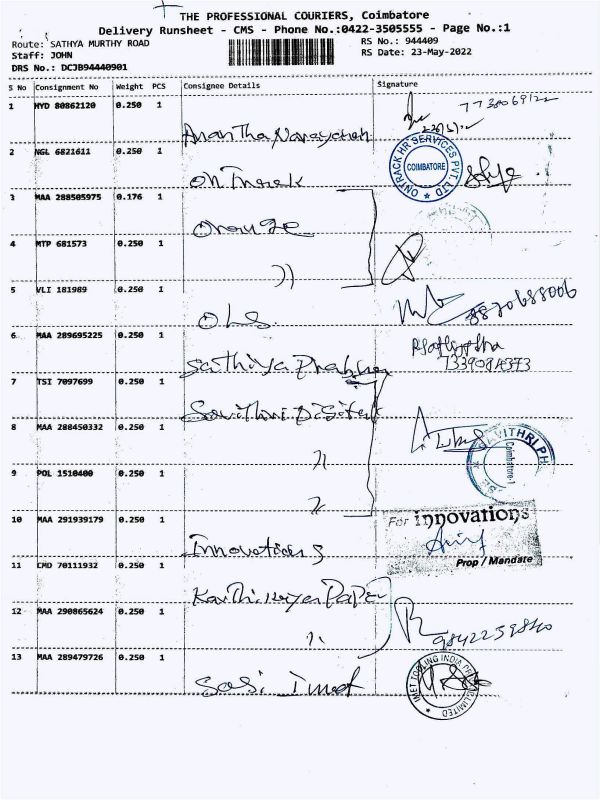 THE PROFESSIONAL COURIERS, Coimbatore
Delivery Runsheet - CMS - Phone No.:0422-3505555 - Page No.:1
Route: SATHYA MURTHY ROAD RS No.: 944409
Staff: JOHN RS Date: 23-May-2022
DRS No.: DCJB94440901
S No Consignment No Weight PCS Consignee Details Signature
1 HYD 80862120 0.250 1
Anantha Narayanan
2 NGL 6821611 0.250 1
ONTRACK HR SERVICES PVT. LTD
COIMBATORE
On Track
3 MAA 288505975 0.176 1
Orange
4 MTP 681573 0.250 1
))
5 VLI 181989 0.250 1
8870688006
OLS
6 MAA 289695225 0.250 1
Sathiya Prabha
7 TSI 7097699 0.250 1
Savithri Digital
8 MAA 288450332 0.250 1
SAVITHRI PH
Coimbatore-1
9 POL 1510480 0.250 1
10 MAA 291939179 0.250 1
For innovations
Prop / Mandate
Innovations
11 CMD 70111932 0.250 1
Karthikeyan Paper
12 MAA 290865624 0.250 1
13 MAA 289479726 0.250 1
INET TOOLING INDIA PRIVATE LIMITED
Sasi Imet